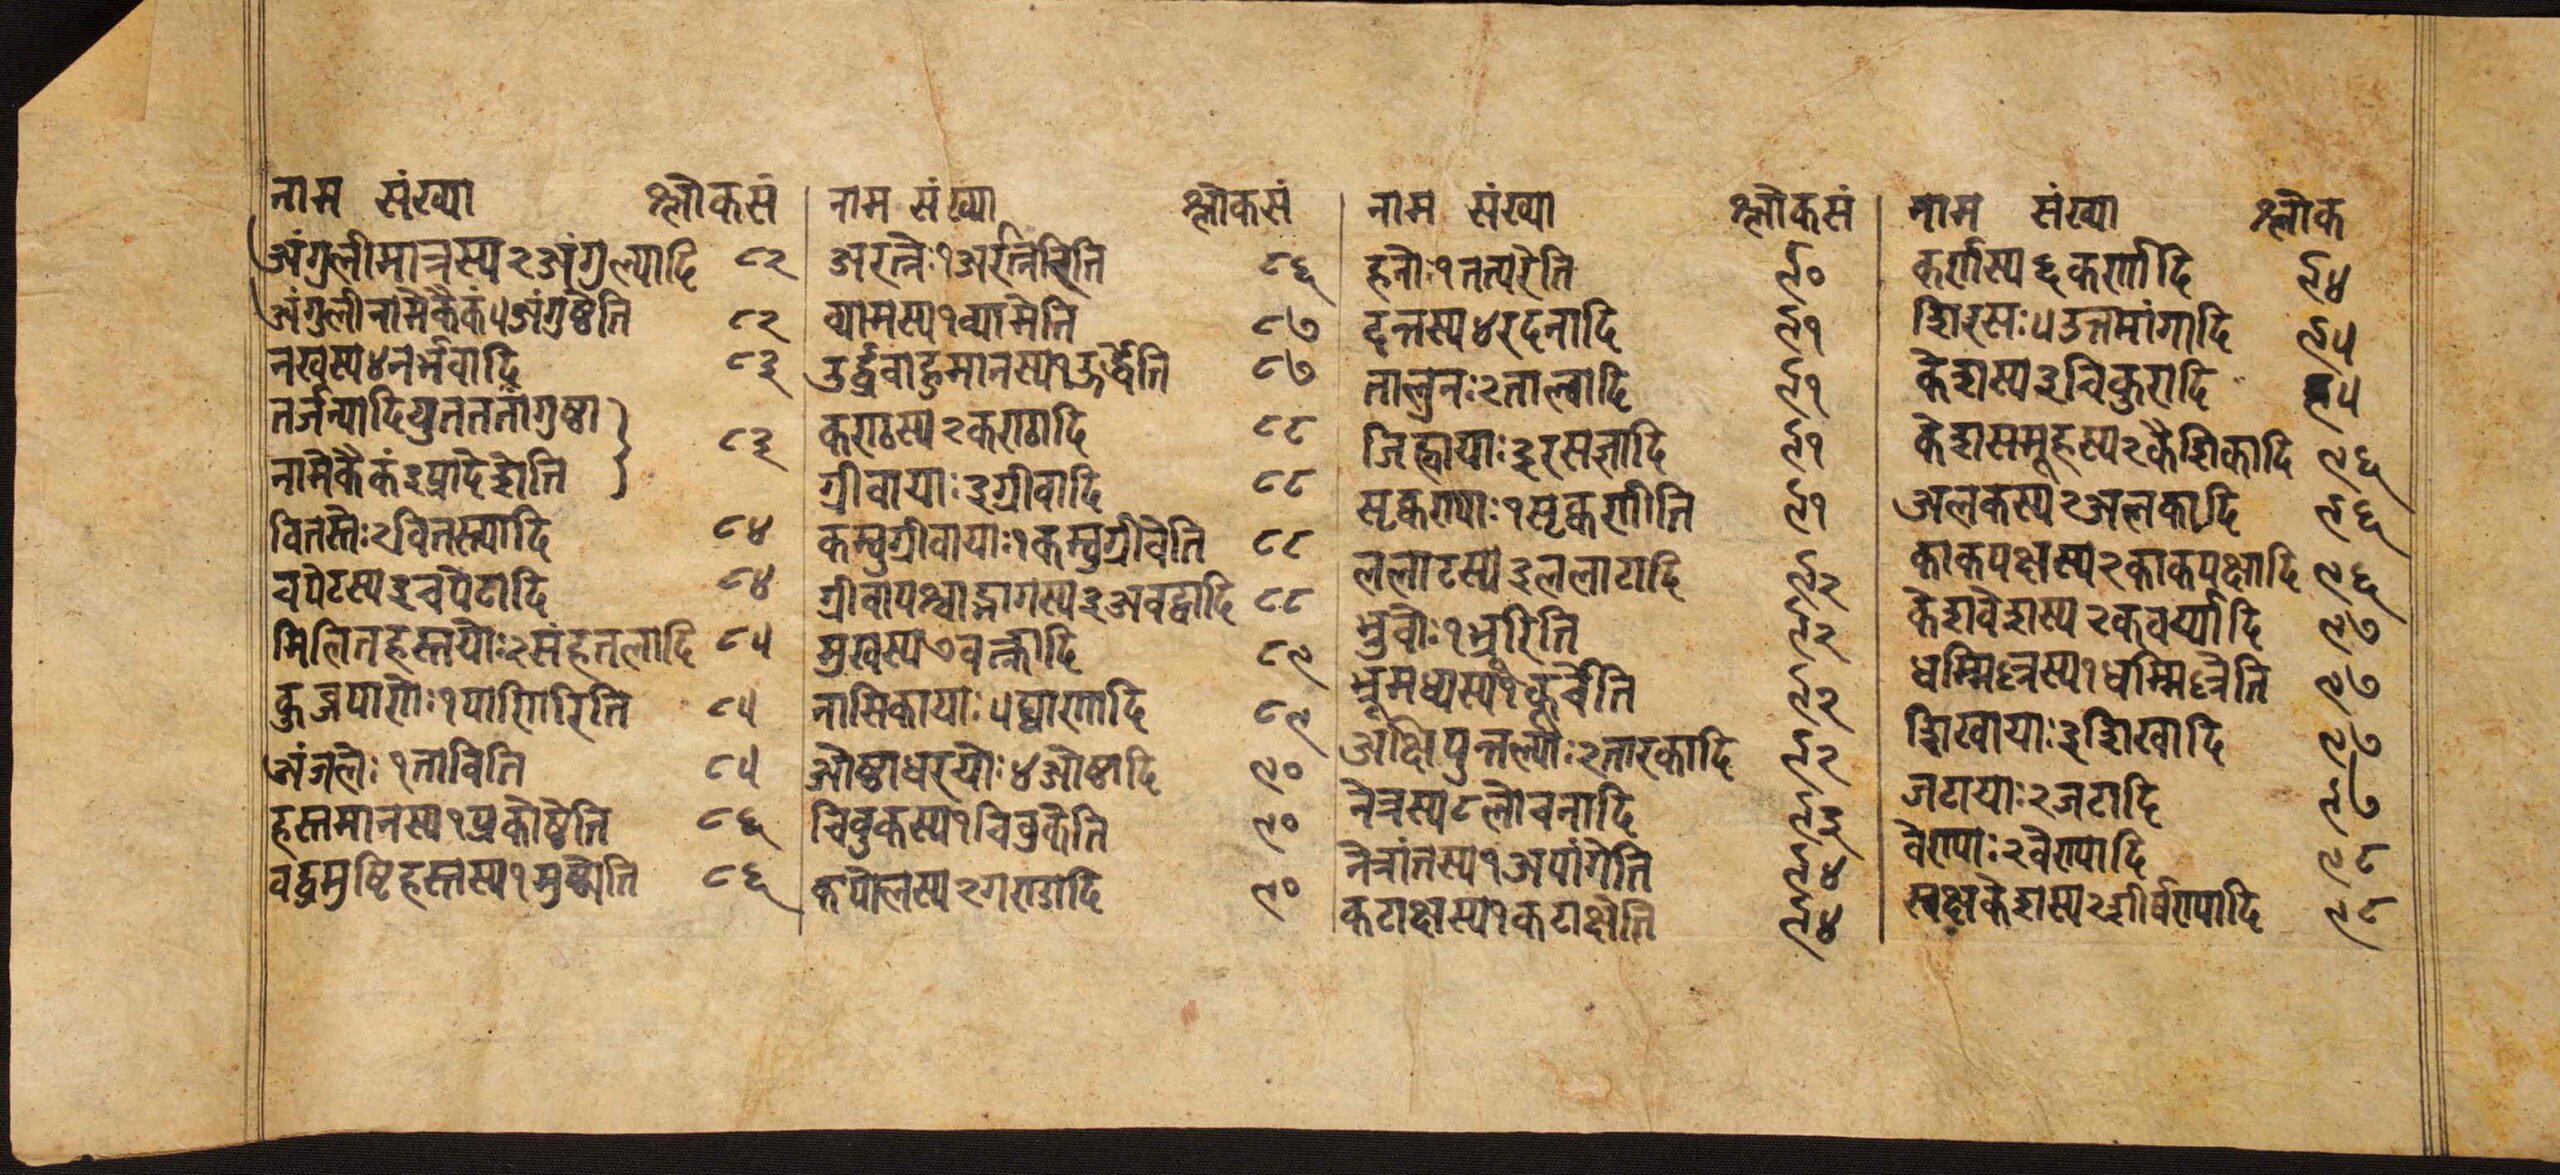 नाम संख्या श्लोकसं
अंगुलीमात्रस्य २ अंगुल्यादि ८२
अंगुलीनामेकैकं ५ अंगुष्ठेति ८२
नखस्य ४ नर्भवादि ८३
तर्जन्यादियुतततांगुष्ठा
नामेकैकं ३ प्रादेशेति ८३
वितस्तेः २ वितस्त्यादि ८४
चपेटस्य ३ चपेटादि ८४
मिलितहस्तयोः २ संहतलादि ८५
कुब्जपाणेः १ पाणिरिति ८५
अंजलेः १ ताविति ८५
हस्तमानस्य १ प्रकोष्ठेति ८६
वद्धमुष्टिहस्तस्य १ मुष्ट्येति ८६
नाम संख्या श्लोकसं
अरत्नेः १ अरत्निरिति ८६
व्यामस्य १ व्यामेति ८७
उर्द्ध्ववाहुमानस्य १ ऊर्द्ध्वेति ८७
कण्ठस्य २ कण्ठादि ८८
ग्रीवायाः ३ ग्रीवादि ८८
कम्वुग्रीवायाः १ कम्वुग्रीवेति ८८
ग्रीवापश्चाद्भागस्य ३ अवद्वादि ८८
मुखस्य ७ वक्त्रादि ८९
नासिकायाः ५ घ्राणादि ८९
ओष्ठाधरयोः ४ ओष्ठादि ९०
चिवुकस्य १ चिवुकेति ९०
कपोलस्य २ गण्डादि ९०
नाम संख्या श्लोकसं
हनोः १ तत्परेति ९०
दन्तस्य ४ रदनादि ९१
तालुनः २ ताल्वादि ९१
जिह्वायाः ३ रसज्ञादि ९१
सृक्कण्याः १ सृक्कणीति ९१
ललाटस्य ३ ललाटादि ९२
भ्रुवोः १ भ्रूरिति ९२
भ्रूमध्यस्य १ कूर्चेति ९२
अक्षिपुत्तल्योः २ तारकादि ९२
नेत्रस्य ८ लोचनादि ९३
नेत्रांतस्य १ अपांगेति ९४
कटाक्षस्य १ कटाक्षेति ९४
नाम संख्या श्लोक
कर्णस्य ६ कर्णादि ९४
शिरसः ५ उत्तमांगादि ९५
केशस्य ३ चिकुरादि ९५
केशसमूहस्य २ कैशिकादि ९६
अलकस्य २ अलकादि ९६
काकपक्षस्य २ काकपक्षादि ९६
केशवेशस्य २ कवर्य्यादि ९७
धम्मिल्लस्य १ धम्मिल्लेति ९७
शिखायाः ३ शिखादि ९७
जटायाः २ जटादि ९७
वेण्याः २ वेण्यादि ९८
स्वक्षकेशस्य २ शीर्षण्यादि ९८